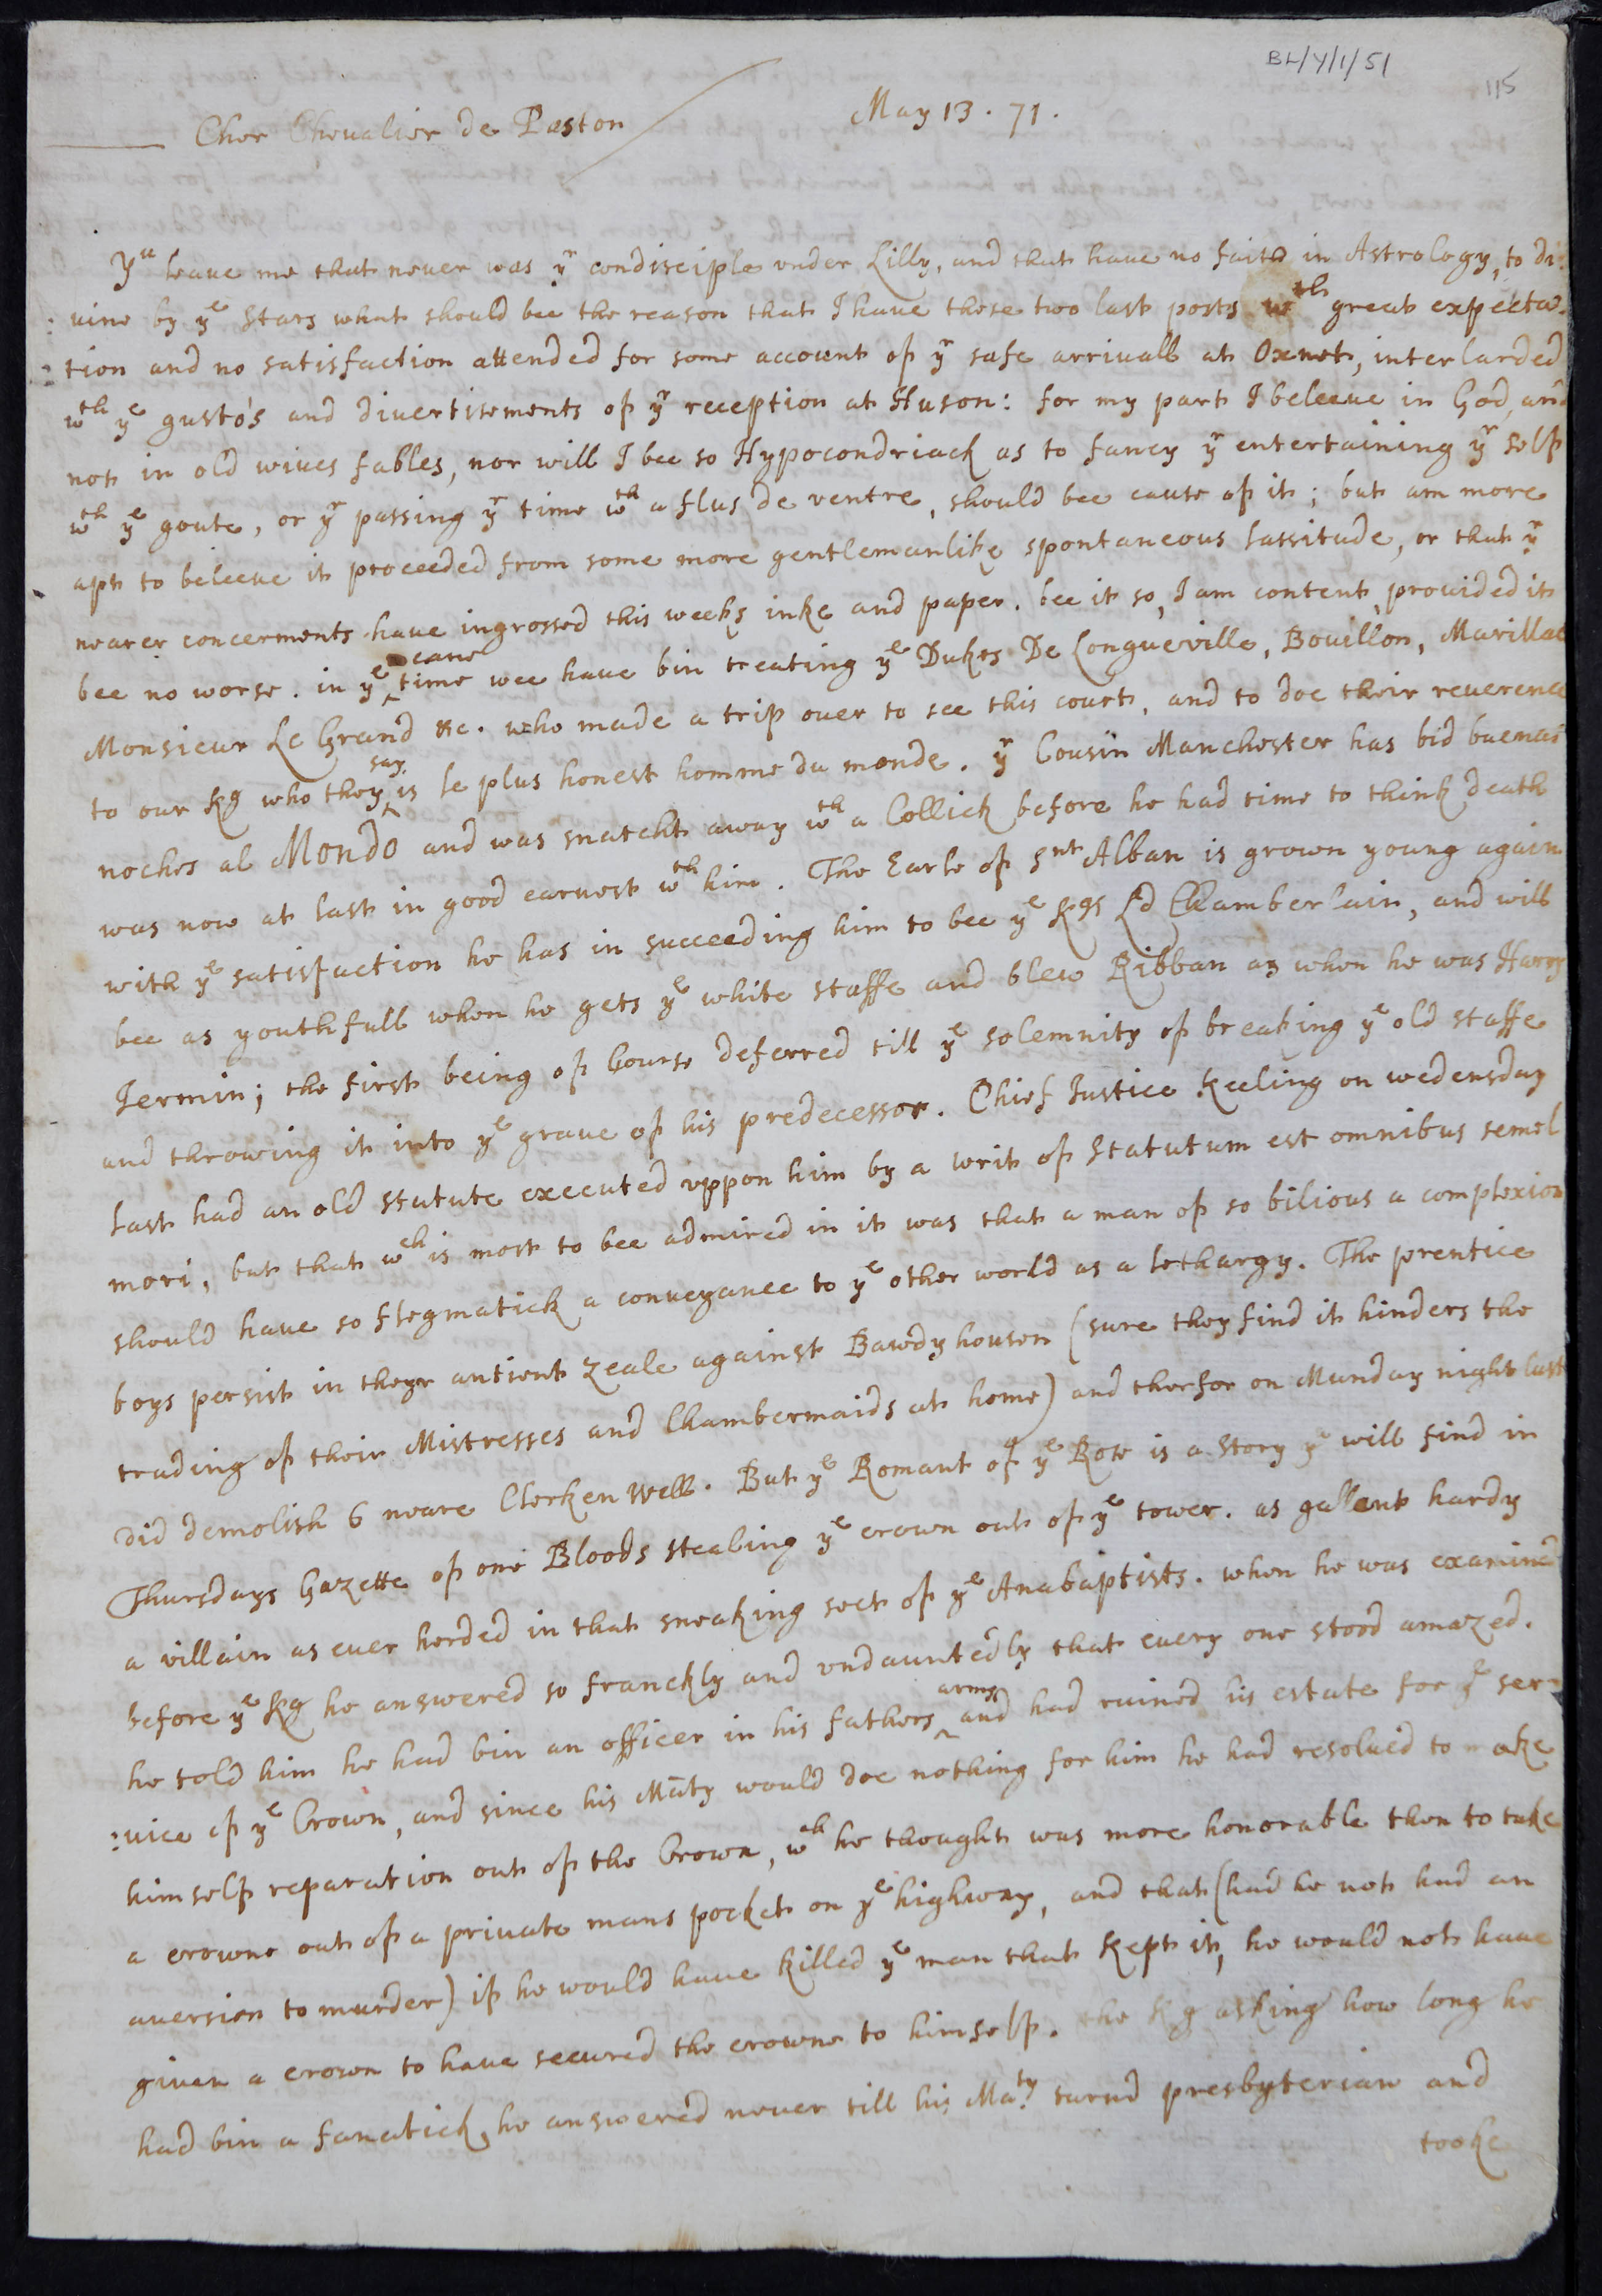 BL/Y/1/51
115
Cher Chevalier de Paston
May 13. 71.
Yu leaue me that neuer was yr condisciple vnder Lilly, and that haue no faith in Astrology, to di:
:uine by ye Stars what should bee the reason that I haue these two last posts wth great expecta:
:tion and no satisfaction attended for some account of yr safe arriuall at Oxnet, interlarded
wth ye gusto's and diuertisements of yr reception at Huson: for my part I beleeue in God, and
not in old wiues fables, nor will I bee so Hypocondriack as to fancy yr entertaining yr self
wth ye goute, or yr passing yr time wth a flus de ventre, should bee cause of it; but am more
apt to beleeue it proceeded from some more gentlemanlike spontaneous lassitude, or that yr
nearer concerments haue ingrossed this weeks inke and paper. bee it so, I am content, prouided it
bee no worse. in ye meane time wee haue bin treating ye Dukes De Longueville, Bouillon, Marillac
Monsieur Le Grand &c. who made a trip ouer to see this court, and to doe their reuerence
to our Kg who they say is le plus honest homme du monde. yr Cousin Manchester has bid buenas
noches al Mondo and was snatcht away wth a Collick before he had time to think death
was now at last in good earnest wth him. The Earle of Snt Alban is grown young again
with ye satisfaction he has in succeeding him to bee ye Kgs Ld Chamberlain, and will
bee as youthfull when he gets ye white staffe and blew Ribban as when he was Harry
Jermin; the first being of Course deferred till ye solemnity of breaking ye old staffe
and throwing it into ye graue of his predecessor. Chief Justice Keeling on wedensday
last had an old statute executed vppon him by a writ of Statutum est omnibus semel
mori, but that wch is most to bee admired in it was that a man of so bilious a complexion
should haue so flegmatick a conueyance to ye other world as a lethargy. The prentice
boys persist in theyr antient zeale against Bawdyhousen (sure they find it hinders the
trading of their Mistresses and Chambermaids at home) and therfor on Munday night last
did demolish 6 neare Clerken Well. But ye Romant of ye Rose is a Story yu will find in
Thursdays Gazette of one Bloods stealing ye crown out of ye tower. as gallent hardy
a villain as euer herded in that sneaking sect of ye Anabaptists. when he was examined
before ye Kg he answered so franckly and vndauntedly that euery one stood amazed.
he told him he had bin an officer in his fathers army and had ruined his estate for ye ser:
:uice of ye Crown, and since his Maty would doe nothing for him he had resolued to make
himself reparation out of the Crown, wch he thought was more honorable then to take
a crowne out of a priuate mans pocket on ye highway, and that (had he not had an
auersion to murder) if he would haue killed ye man that kept it, he would not haue
giuen a crown to haue secured the crowne to himself. the Kg asking how long he
had bin a fanatick, he answered neuer till his Maty turnd presbyterian and
tooke